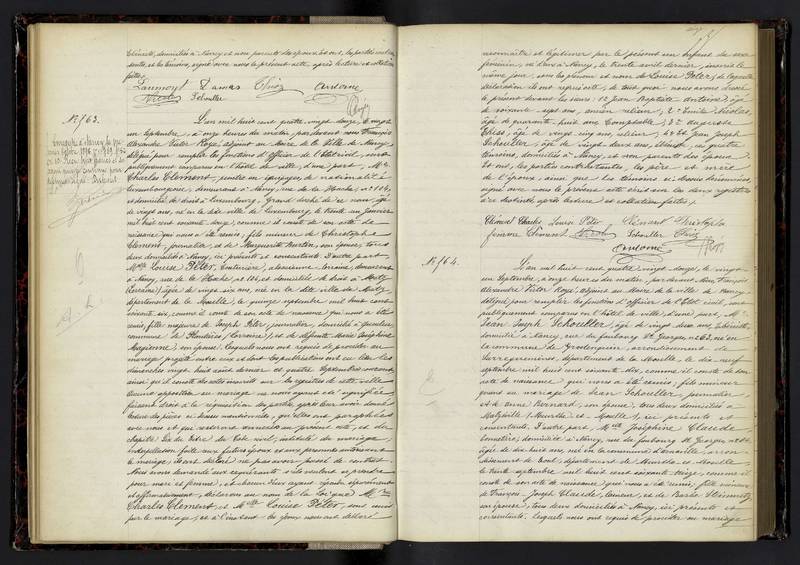 domiciliés à Nancy et non parents des époux, les parties
et les témoins, signé avec nous le présent acte après lecture et
faites.
Laumont Damas Thiry Antoine
Nicolas Schouller
N. 763.
L'an mil huit cent quatre vingt douze, le vingt
un Septembre, à onze heures du matin, par devant nous François
Alexandre Victor Roye, adjoint au Maire de la Ville de Nancy
délégué pour remplir les fonctions d'officier de l'Etat civil, sont
publiquement comparus en l'hôtel de ville, d'une part, Mr
Charles Clement, peintre en équipages, de nationalité
Luxembourgeoise, demeurant à Nancy, rue de la Hache, n° 114,
et domicilié de droit à Luxembourg, Grand duché de ce nom, âgé
de vingt ans, né en la dite ville de Luxembourg, le trente un janvier
mil huit cent soixante douze, comme il conste de son acte de
naissance qui nous a été remis, fils mineur de Christophe
Clement, journalier et de Marguerite Burton, son épouse, tous
deux domiciliés à Nancy, ici présents et consentants. D'autre part,
Melle Louise Péter, couturière, alsacienne lorraine, demeurant
à Nancy, rue de la Hache, n° 114 et domiciliée de droit à Metz
(Lorraine) âgée de vingt six ans, née en la dite ville de Metz
département de la Moselle, le quinze septembre mil huit cent
soixante six, comme il conste de son acte de naissance qui nous a été
remis, fille majeure de Joseph Péter, journalier, domicilié à
commune de Plantières (Lorraine), et de défunte Marie Joséphine
son épouse. Lesquels nous ont requis de procéder au
mariage projeté entre eux et dont les publications ont eu lieu les
dimanches vingt huit août dernier et quatre Septembre courant
ainsi qu'il conste des actes inscrits sur les registres de cette ville
Aucune opposition au mariage ne nous ayant été signifiée
faisant droit à la réquisition des parties, après leur avoir donné
lecture des pièces ci dessus mentionnées, qu'elles ont paraphées
avec nous et qui resteront annexées au présent acte, et du
chapitre six du titre du Code civil, intitulé du mariage,
interpellation faite aux futurs époux et aux personnes autorisant
le mariage, ils ont déclaré ne pas avoir passé de contrat.
Nous avons demandé aux requérants s'ils veulent se prendre
pour mari et femme, et chacun d'eux ayant répondu séparément
et affirmativement, déclarons au nom de la loi que Mr
Charles Clement, et Melle Louise Péter, sont unis
par le mariage, et à l'instant les époux nous ont déclaré
reconnaître et légitimer par le présent un enfant du sexe
féminin, né d'eux à Nancy, le trente avril dernier, inscrit le
même jour, sous les prénom et nom de Louise Péter, de laquelle
déclaration ils ont requis acte, de tout quoi nous avons dressé
le présent devant les sieurs 1° Jean Baptiste Antoine, âgé
de soixante sept ans, ancien relieur, 2° Emile Nicolas,
âgé de quarante huit ans, comptable, 3° Auguste
âgé de vingt cinq ans, relieur, 4° et Jean Joseph
Schouller, âgé de vingt deux ans, ébéniste, ces quatre
témoins, domiciliés à Nancy et non parents des époux.
Et ont, les parties contractantes, les père et mère
de l'époux, ainsi que les témoins ci dessus dénommés,
signé avec nous le présent acte écrit sur les deux registres
et collation faites.
Clément Charles Louise Péter Clément Christophe
femme Clément Nicolas Schouller
Antoine
N. 764.
L'an mil huit cent quatre vingt douze, le vingt
un Septembre, à onze heures du matin, par devant nous François
Alexandre Victor Roye, adjoint au Maire de la ville de Nancy
délégué pour remplir les fonctions d'officier de l'Etat civil, sont
publiquement comparus en l'hôtel de ville, d'une part, Mr
Jean Joseph Schouller, âgé de vingt deux ans, ébéniste,
domicilié à Nancy, rue du faubourg St Georges, n° 63, né en
la commune de Grostenquin, arrondissement de
Sarreguemines, département de la Moselle, le dix neuf
septembre mil huit cent soixante dix, comme il conste de son
acte de naissance qui nous a été remis, fils mineur
quant au mariage de Jean Schouller,
et de Anne Bernard, son épouse, tous deux domiciliés à
Malzéville (Meurthe et Moselle), ici présents et
consentants. D'autre part, Melle Joséphine Claude
domiciliée à Nancy, rue du faubourg St Georges, n°
âgée de dix huit ans, née en la commune d'
département de Meurthe et Moselle
le trente septembre mil huit cent soixante treize, comme il
conste de son acte de naissance qui nous a été remis, fille mineure
de François Joseph Claude, tanneur, et de Barbe
son épouse, tous deux domiciliés à Nancy, ici présents et
consentants. Lesquels nous ont requis de procéder au mariage